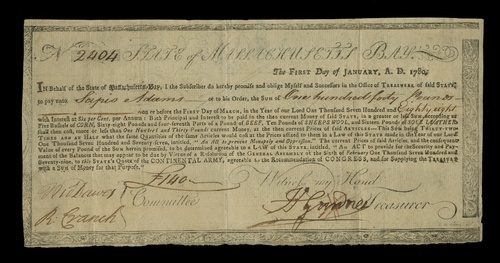 No. 2404 STATE of MASSACHUSETTS-BAY.
The First Day of JANUARY, A. D. 1780.
IN Behalf of the State of Massachusetts-Bay, I the Subscriber do hereby promise and oblige Myself and Successors in the Office of TREASURER of said STATE,
to pay unto Scipio Adams or to his Order, the Sum of One hundred forty Pounds
on or before the First Day of March, in the Year of our Lord One Thousand Seven Hundred and Eighty eight
with Interest at Six per Cent. per Annum: Both Principal and Interest to be paid in the then current Money of said STATE, in a greater or less Sum, according as
Five Bushels of CORN, Sixty-eight Pounds and four-seventh Parts of a Pound of BEEF, Ten Pounds of SHEEPS WOOL, and Sixteen Pounds of SOLE LEATHER
shall then cost, more or less than One Hundred and Thirty Pounds current Money, at the then current Prices of said Articles—This Sum being THIRTY-TWO
TIMES AND AN HALF what the same Quantities of the same Articles would cost at the Prices affixed to them in a Law of this STATE made in the Year of our Lord
One Thousand Seven Hundred and Seventy-seven, intitled, "An Act to prevent Monopoly and Oppression." The current Prices of said Articles, and the consequent
Value of every Pound of the Sum herein promised, to be determined agreeable to a LAW of this STATE, intitled, "An ACT to provide for the Security and Pay-
ment of the Balances that may appear to be due by Virtue of a Resolution of the GENERAL ASSEMBLY of the Sixth of February One Thousand Seven Hundred and
Seventy-nine, to this STATE'S Quota of the CONTINENTAL ARMY, agreeable to the Recommendation of CONGRESS, and for Supplying the TREASURY
with a Sum of Money for that Purpose."
£140
Witness my Hand
Committee
R Cranch
Treasurer